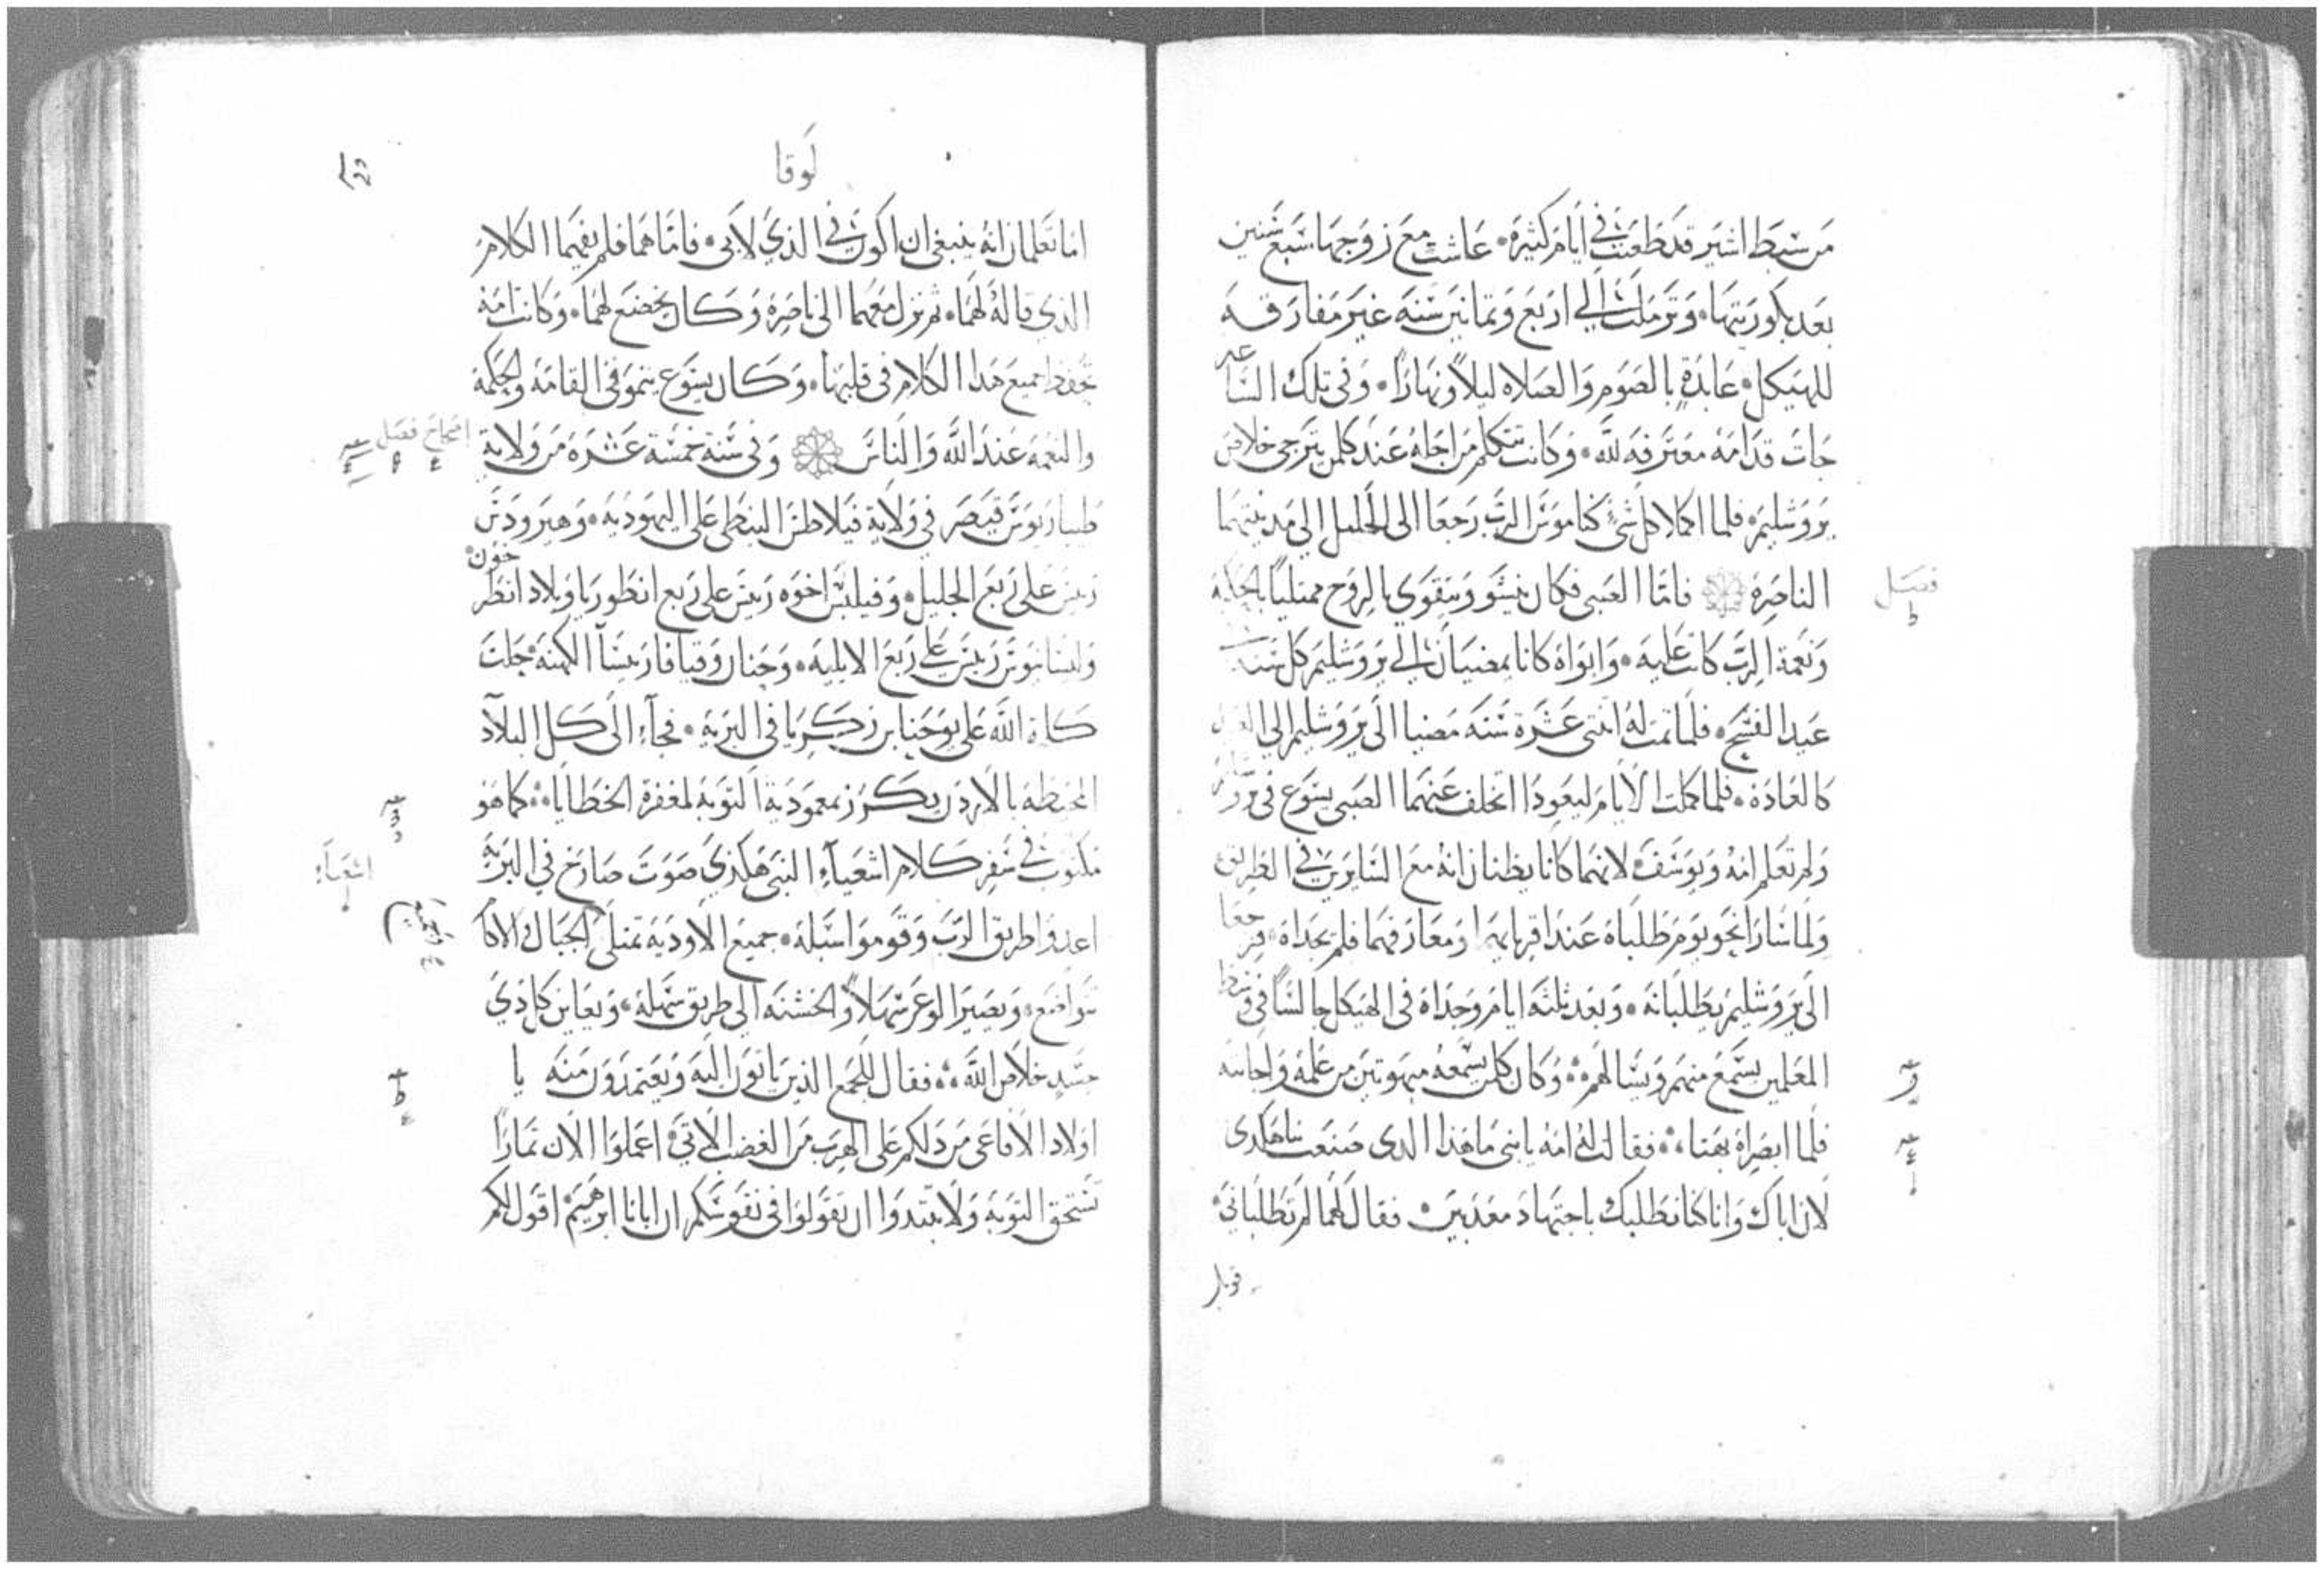 من سبط اشير قد طعنت في ايام كثيرة. عاشت مع زوجها سبع سنين
بعد بكوريتها. وترملت الي اربع وثمانين سنه غير مفارقه
للهيكل. عابدة بالصوم والصلاه ليلاً ونهاراً. وفي تلك الساعه
جات قدامه معترفه لله. وكانت تتكلم من اجله عند كلمن يترجي خلاص
يروشليم. فلما اكملا كل شي كناموس الرب رجعا الى الجليل الي مدينتهما
الناصره فاما الصبي فكان ينشو ويتقوي بالروح ممتلياً بالحكمة
ونعمة الرب كانت عليه. وابواه كانا يمضيان الي يروشليم كل سنه
عيد الفسح. فلما تمت له اثنتى عشرة سنه مضيا الى يروشليم الي العيد
كالعاده. فلما كملت الايام ليعودا تخلف عنهما الصبي يسوع في يروشليم
ولم تعلم امه ويوسف. لانهما كانا يظنان انه مع السايرين في الطريق
ولما سارا نحو يوم طلباه عند اقربايهما ومعارفهما فلم يجداه. فرجعا
الى يروشليم يطلبانه. وبعد ثلثه ايام وجداه في الهيكل جالسا في وسط
المعلمين يسمع منهم ويسالهم. وكان كلمن يسمعه مبهوتين من علمه واجابته
فلما ابصراه بهتا. فقالت له امه يا بني ما هذا الدى صنعت بنا هكدى
لان اباك وانا كنا نطلبك باجتهاد معذبين. فقال لهما لم تطلباني
فصل
ط
قوبل
لوقا
اما تعلمان انه ينبغي ان اكون في الذي لابي. فاما هما فلم يفهما الكلام
الذي قاله لهما. ثم نزل معهما الى ناصره وكان يخضع لهما. وكانت امه
تحفظ جميع هدا الكلام في قلبها. وكان يسوع ينمو في القامه والحكمة
والنعمة عند الله والناس وفي سنة خمسة عشره من ولاية
طيباريوس قيصر في ولاية فيلاطس البنطي على اليهوديه. وهيرودس
ريس على ربع الجليل. وفيلبس اخوه ريس على ربع انطوريا وبلاد انطرخون
ولسانيوس ريس علي ربع الابليه. وحنان وقيافا ريسا الكهنه. حلت
كلمة الله على يوحنا بن زكريا في البريه. فجآء الى كل البلاد
المحيطه بالاردن يكرز بمعمودية التوبه لمغفرة الخطايا. كما هو
مكتوب في سفر كلام اشعيآء النبي هكذي صوت صارخ في البريه
اعدوا طريق الرب وقوموا سبله. جميع الاوديه تمتلي والجبال والاكام
تتواضع. ويصير الوعر سهلاً والخشنه الي طريق سهله. ويعاين كل ذي
جسد خلاص الله. فقال للجمع الذين ياتون اليه ويعتمدون منه يا
اولاد الافاعى من دلكم على الهرب من الغضب الاتي. اعملوا الان ثماراً
تستحق التوبه ولا تبتدوا ان تقولوا في نفوسكم ان ابانا ابرهيم. اقول لكم
اصحاح فصل
اشعيآء